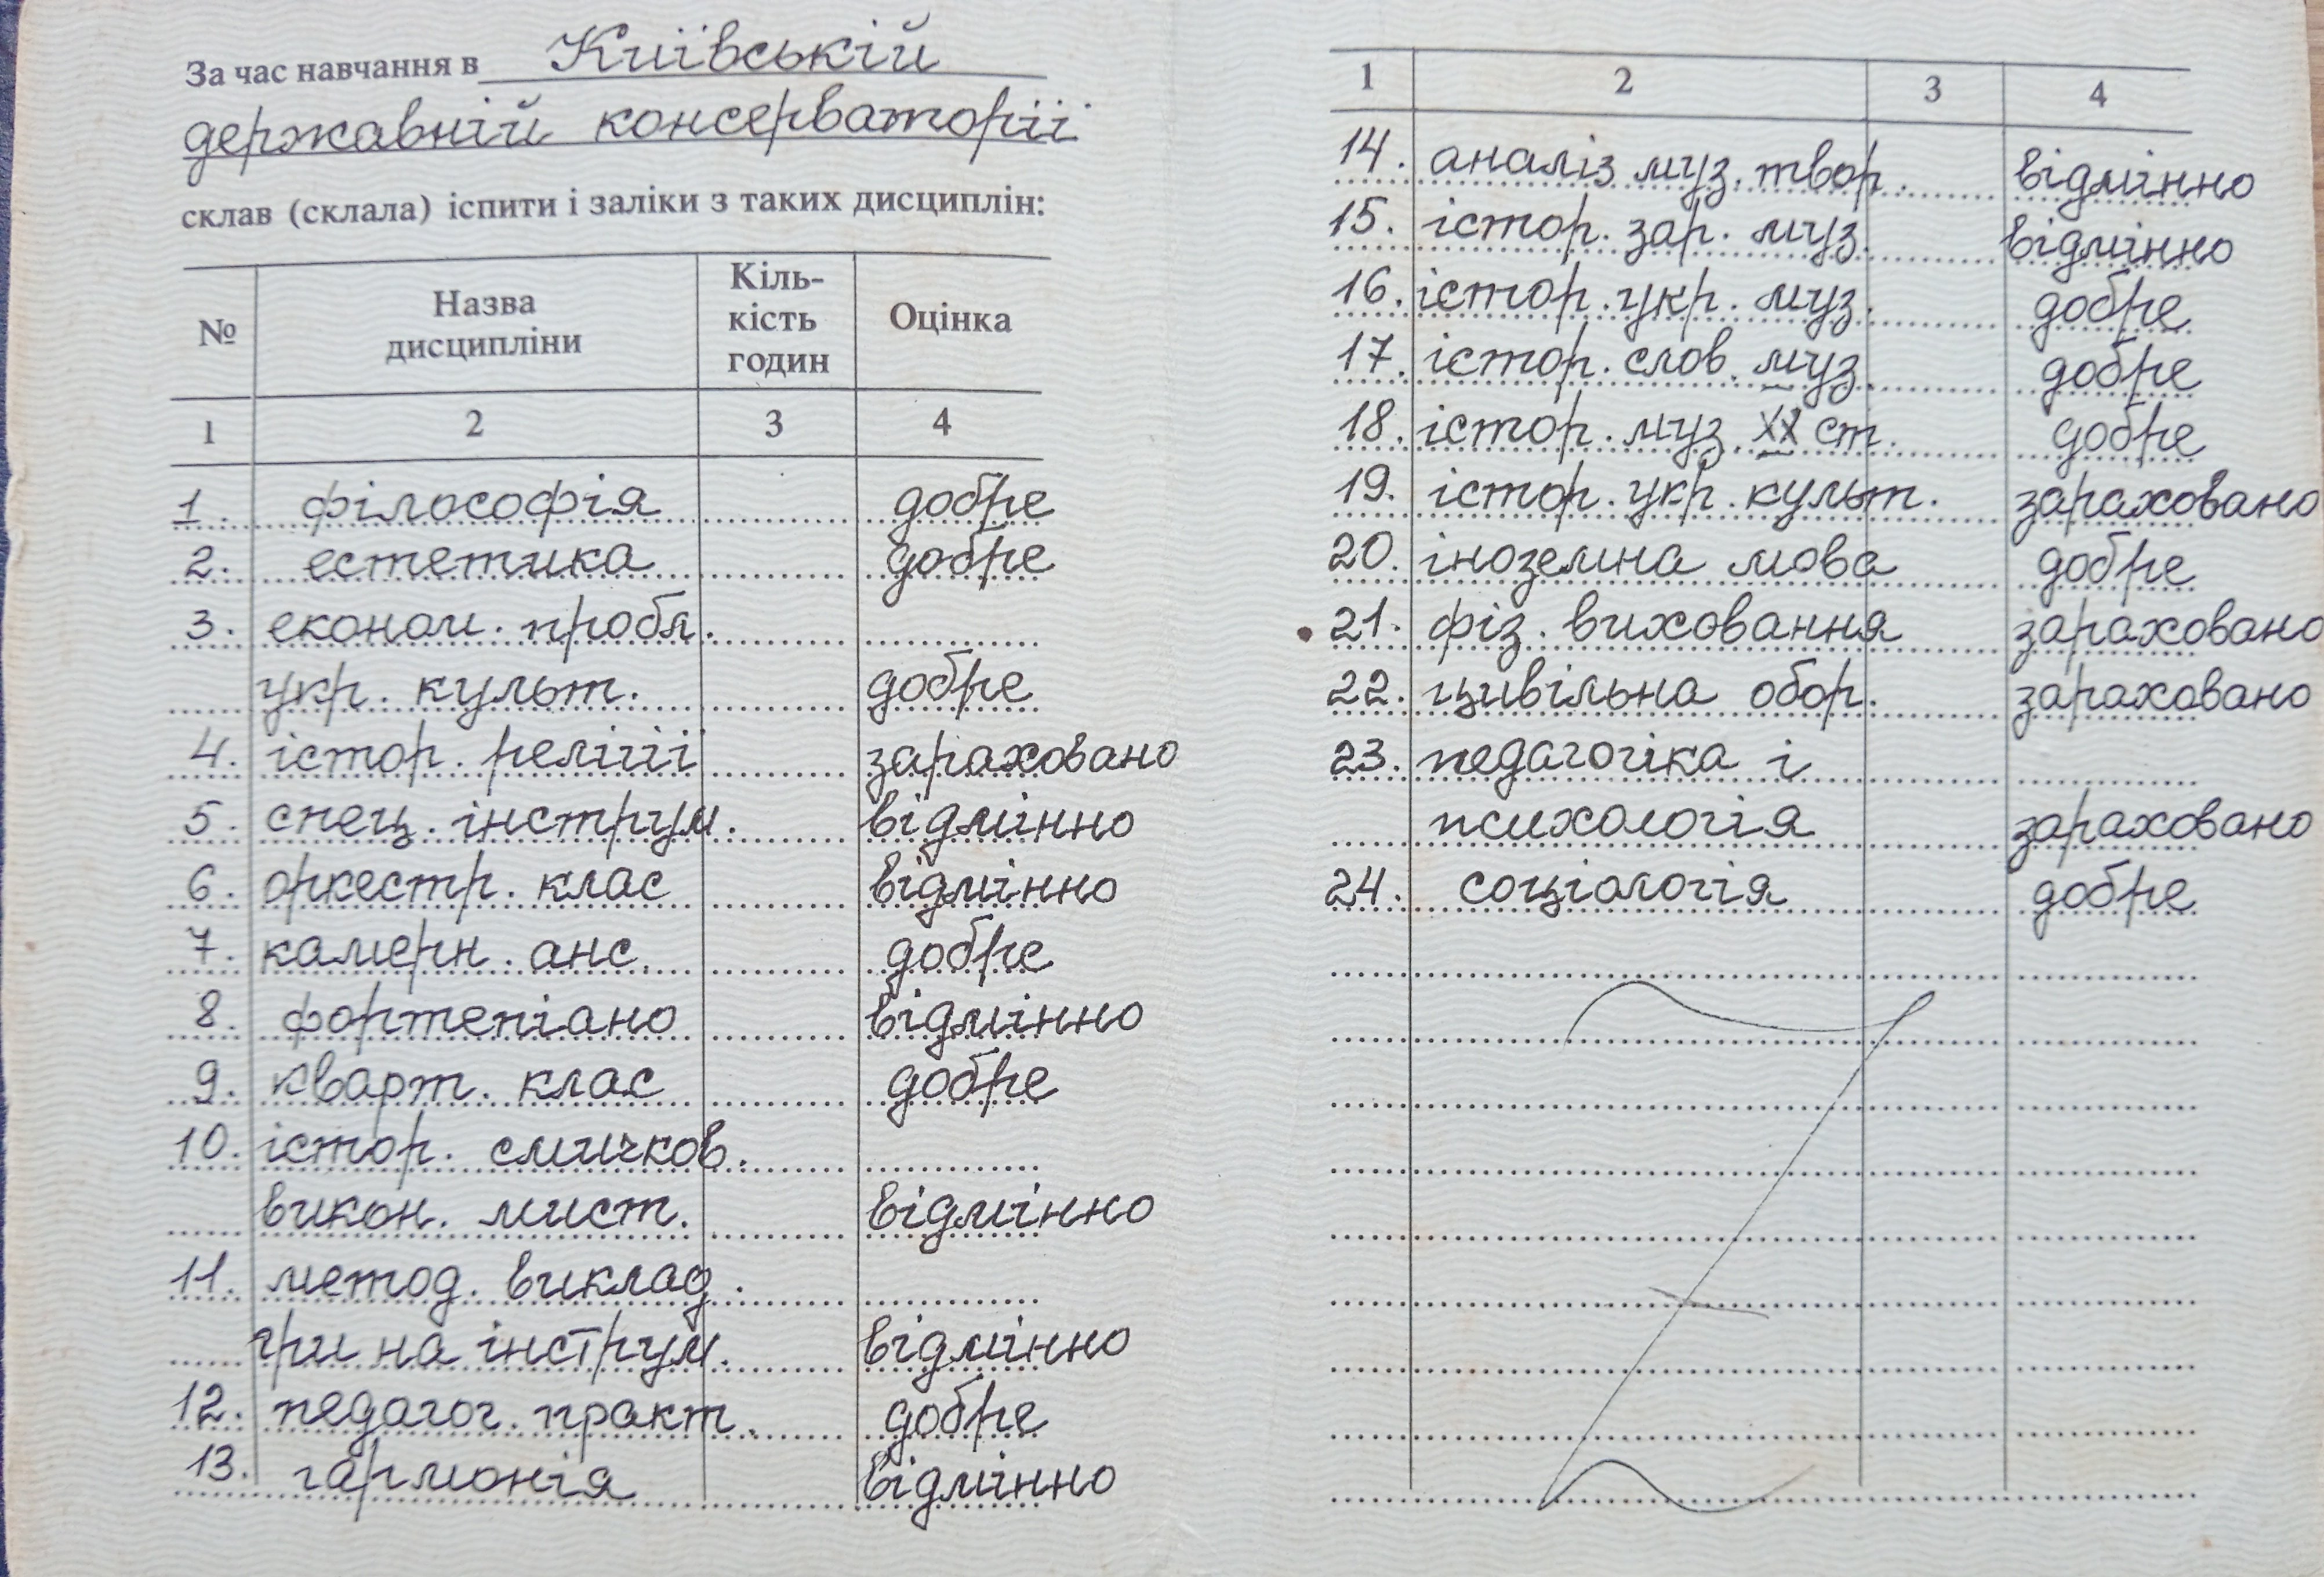 За час навчання в Київській
державній консерваторії
склав (склала) іспити і заліки з таких дисциплін:
№ Назва дисципліни Кіль-кість годин Оцінка
1 2 3 4
1. філософія добре
2. естетика добре
3. економ. пробл.
укр. культ. добре
4. істор. релігії зараховано
5. спец. інструм. відмінно
6. оркестр. клас відмінно
7. камерн. анс. добре
8. фортепіано відмінно
9. кварт. клас добре
10. істор. смичков.
викон. мист. відмінно
11. метод. виклад.
гри на інструм. відмінно
12. педагог. практ. добре
13. гармонія відмінно
1 2 3 4
14. аналіз муз. твор. відмінно
15. істор. зар. муз. відмінно
16. істор. укр. муз. добре
17. істор. слов. муз. добре
18. істор. муз. XX ст. добре
19. істор. укр. культ. зараховано
20. іноземна мова добре
21. фіз. виховання зараховано
22. цивільна обор. зараховано
23. педагогіка і
психологія зараховано
24. соціологія добре